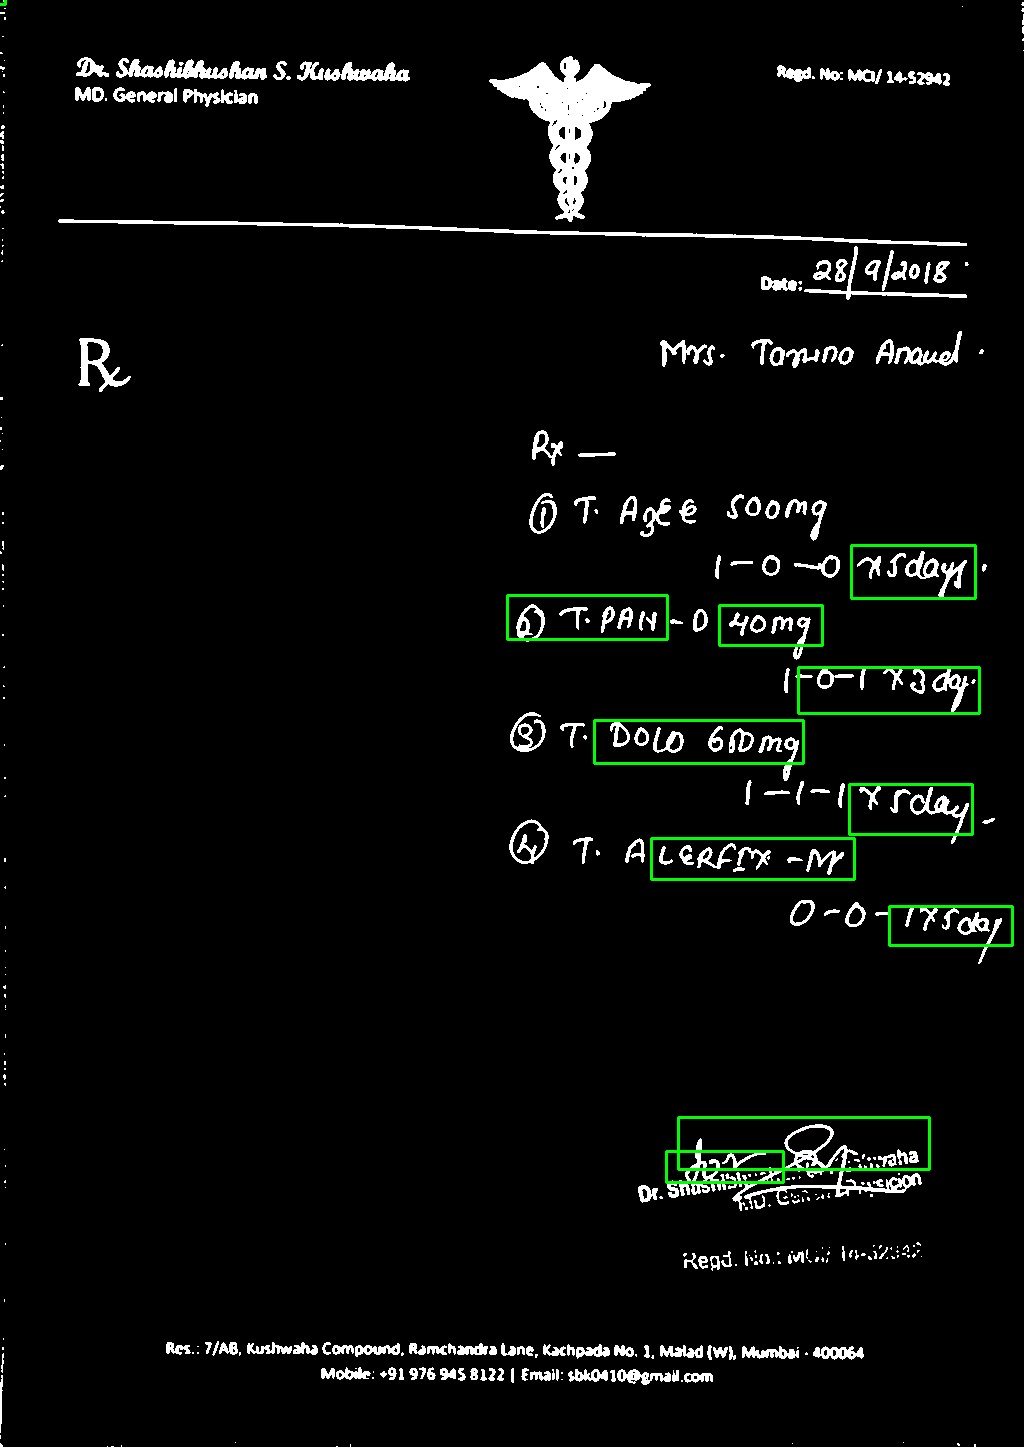 Dr. Shashibhushan S. Kushwaha
MD. General Physician
Regd. No: MCI/ 14-52942
Date: 28/9/2018
Rx
Mrs. Anand
Rx —
① T. Azee 500mg
1-0-0 x5days.
② T. PAN-D 40mg
1-0-1 x3day.
③ T. DOLO 650mg
1-1-1 x5day
④ T. ALERFIX-M
0-0-1x5day
Dr. Shashibhushan Kushwaha
MD. General Physician
Regd. No.: MCI/ 14-52942
Res.: 7/AB, Kushwaha Compound, Ramchandra Lane, Kachpada No. 1, Malad (W), Mumbai - 400064
Mobile: +91 976 945 8122 | Email: sbk0410@gmail.com